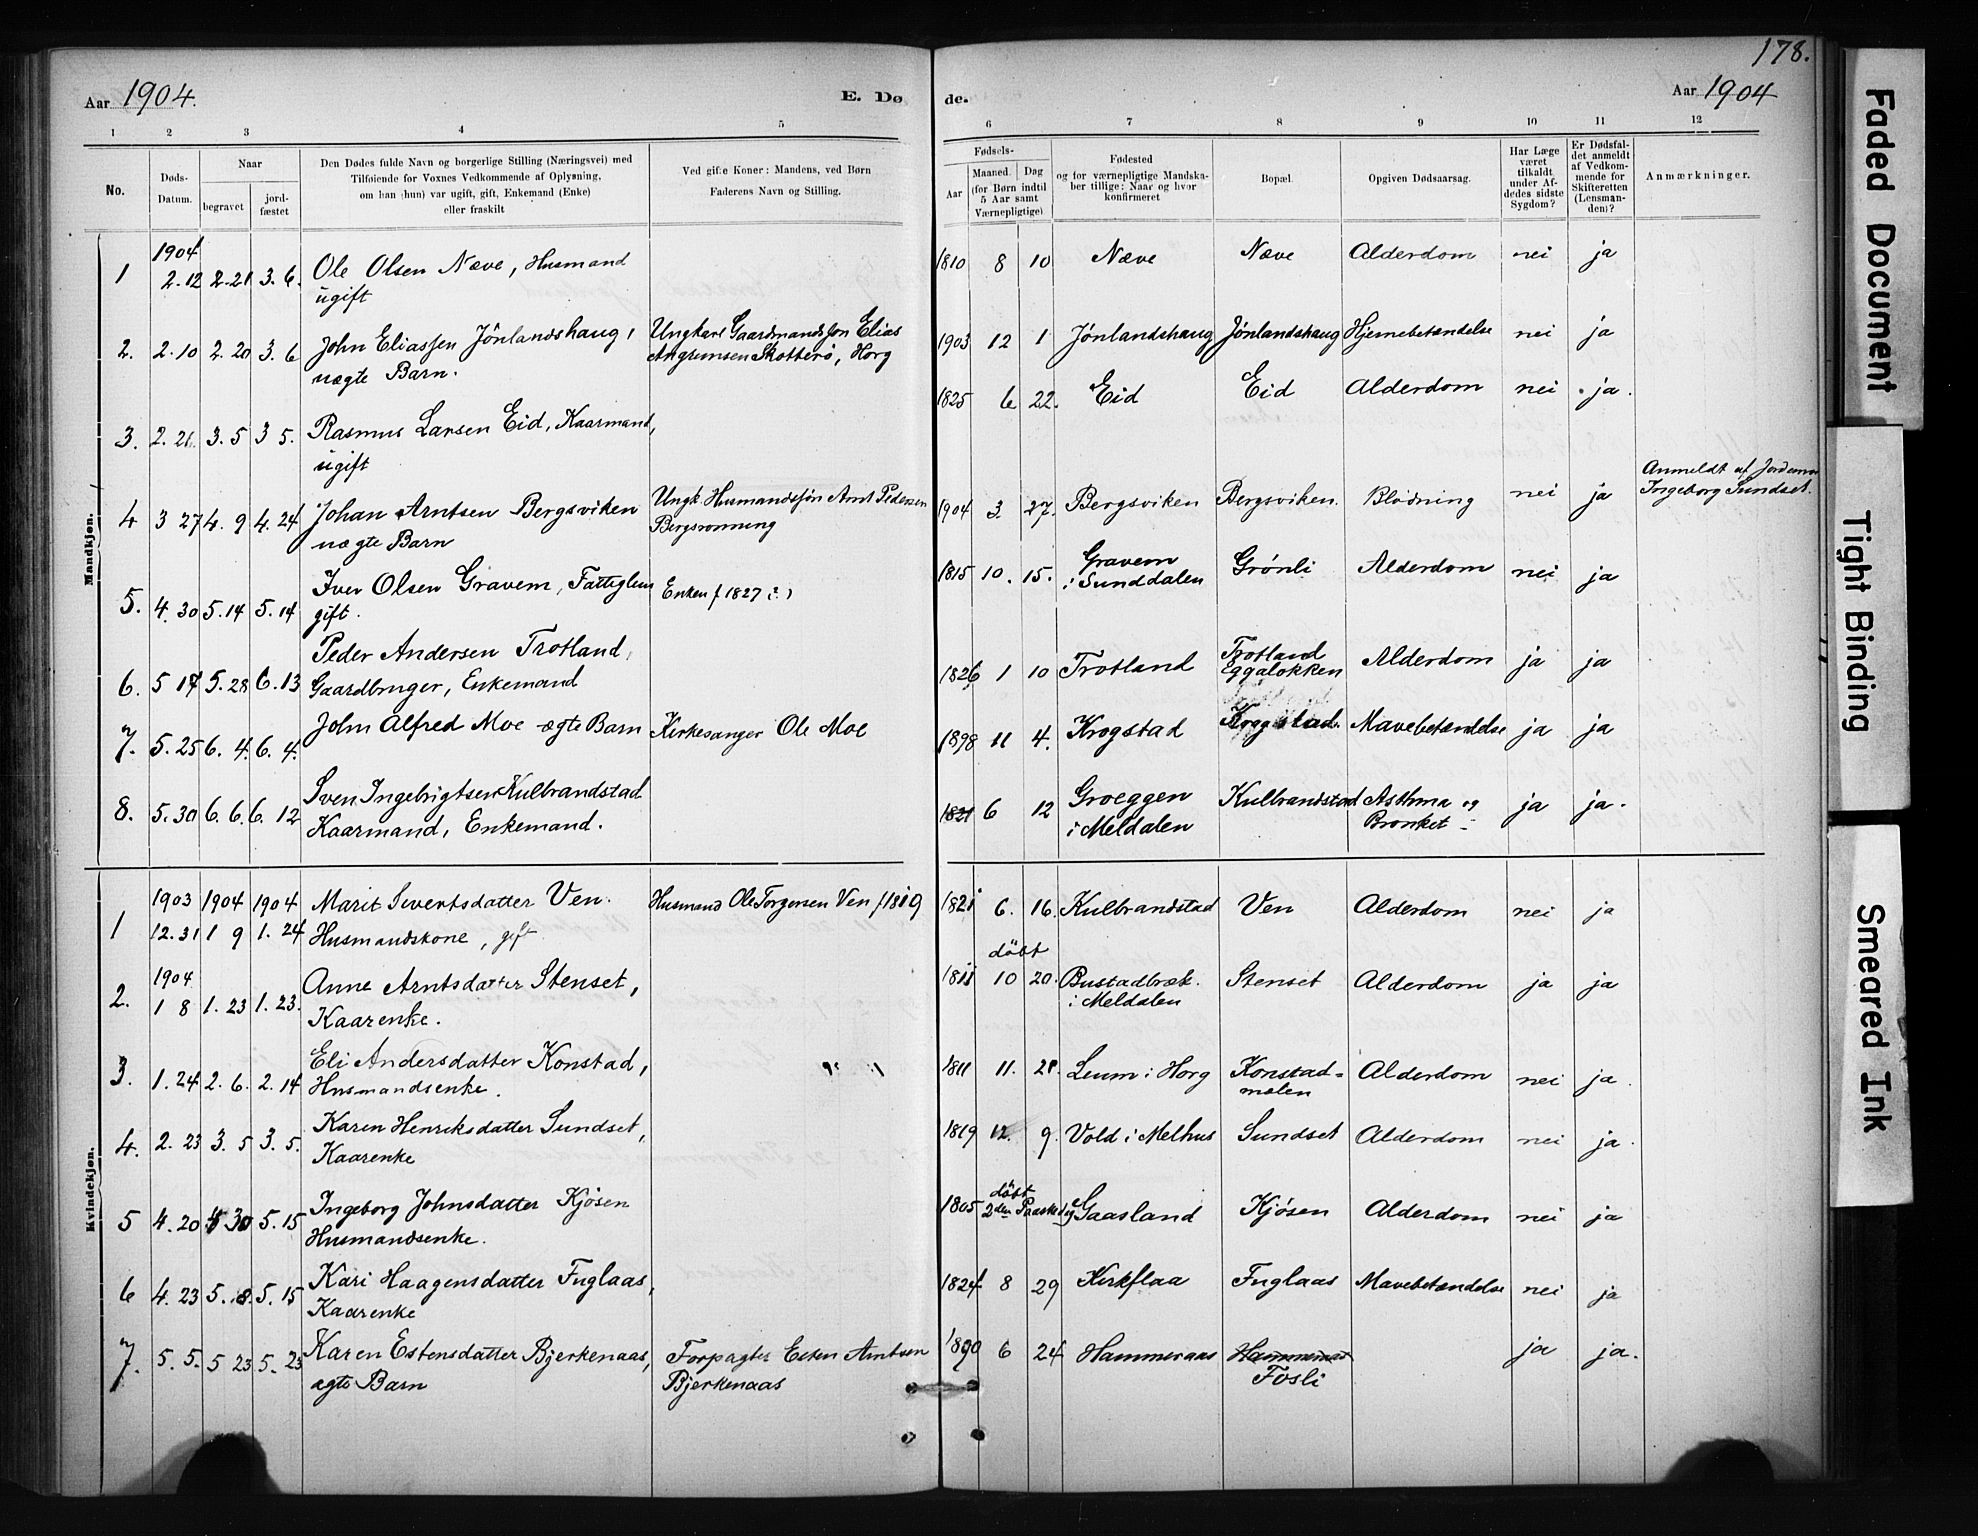 178.
Aar 1904.
E. Dø
de.
Aar 1904
1 2 3 4 5 6 7 8 9 10 11 12
No.
Døds-
Datum.
Naar
begravet
jord-
fæstet
Den Dødes fulde Navn og borgerlige Stilling (Næringsvei) med
Tilføiende for Voxnes Vedkommende af Oplysning,
om han (hun) var ugift, gift, Enkemand (Enke)
eller fraskilt
Ved gifte Koner: Mandens, ved Børn
Faderens Navn og Stilling.
Fødsels-
Aar
Maaned.
Dag
(for Børn indtil
5 Aar samt
Værnepligtige)
Fødested
og for værnepligtige Mandska-
ber tillige: Naar og hvor
konfirmeret
Bopæl.
Opgiven Dødsaarsag.
Har Læge
været
tilkaldt
under Af-
dødes sidste
Sygdom?
Er Dødsfal-
det anmeldt
af Vedkom-
mende for
Skifteretten
(Lensman-
den)?
Anmærkninger.
Mandkjøn.
1904
1 2.12 2.21 3.6. Ole Olsen Næve, Husmand 1810 8 10 Næve Næve Alderdom nei ja
ugift
2. 2.10 2.20 3.6 John Eliassen Jønlandshaug, Ungkarl Gaardmandssøn Elias 1903 12 1 Jønlandshaug Jønlandshaug Hjernebetændelse nei ja
uægte Barn. Skotterø, Horg
3. 2.21. 3.5 3 5. Rasmus Larsen Eid, Kaarmand, 1825 6 22. Eid Eid Alderdom nei ja.
ugift
Anmeldt af
4 3 27 4.9 4.24 Johan Arntsen Bergsviken Ungk. Husmandssøn Arnt Pedersen 1904 3. 27. Bergsviken Bergsviken. Blødning nei ja Ingeborg Sundset.
uægte Barn Bergsrønning
5. 4.30 5.14 5.14 Iver Olsen Gravem, Fattiglem Enken f 1827 (?) 1815 10. 15. Gravem Grønli Alderdom nei ja
gift. i Sunddalen
6. 5 17 5.28 6.13 Peder Andersen Trotland, 1826 1 10 Trotland Trotland Alderdom ja ja
Gaardbruger, Enkemand Eggaløkken
7. 5.25 6.4. 6.4. John Alfred Moe ægte Barn Kirkesanger Ole Moe 1898 11 4. Krogstad Krogstad Mavebetændelse ja ja
8. 5.30 6.6. 6.12 Sven Ingebrigtsen Kulbrandstad 1821 6 12 Groeggen Kulbrandstad Asthma og ja ja.
Kaarmand, Enkemand. i Meldalen Bronket.
Kvindekjøn.
1903 1904 1904
1 12.31 1 9 1.24 Marit Sivertsdatter Ven. Husmand Ole Torgersen Ven f 1819 1821 6. 16. Kulbrandstad Ven Alderdom nei ja
Husmandskone, gift
1904 døbt
2. 1 8 1.23 1.23. Anne Arntsdatter Stenset, 1811 10 20. Bustadbræk. Stenset Alderdom ja ja
Kaarenke. i Meldalen
3. 1.24 2.6. 2.14 Eli Andersdatter Konstad, 1811 11. 28. Leum i Horg Konstad- Alderdom nei ja.
Husmandsenke. moen
4. 2.23 3.5 3.5. Karen Henriksdatter Sundset, 1819 12. 9. Vold i Melhus Sundset Alderdom nei ja.
Kaarenke
døbt
5 4.20 4 30 5.15 Ingeborg Johnsdatter Kjøsen 1805 2den Paaskedag Gaasland Kjøsen Alderdom nei ja
Husmandsenke.
6 4.23 5.8. 5.15 Kari Haagensdatter Fuglaas, 1824 8 29 Kirkflaa Fuglaas Mavebetændelse nei ja
Kaarenke
7. 5.5. 5 23 5.23 Karen Estensdatter Bjerkenaas, Forpagter Esten Arntsen 1890 6 24 Hammeraas Hammeraas ja ja.
ægte Barn Bjerkenaas Fosli
Faded Document
Tight Binding
Smeared Ink